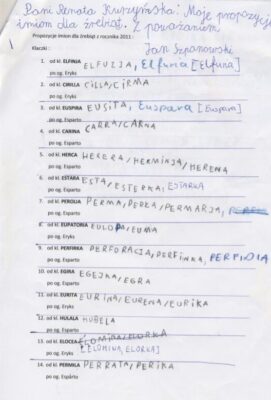 Pani Renata Kurzyńska! Moje propozycje
imion dla źrebiąt. Z poważaniem
Jan Szpanowski
Propozycje imion dla źrebiąt z rocznika 2011 :
Klaczki :
1. od kl. ELFINJA ELFUZJA, Elfuna [Elfuna]
po og. Eryks
2. od kl. CIRILLA CILLA/CIRMA
po og. Eryks
3. od kl. EUSPIRA EUSITA, Euspara [Euspara]
po og. Esparto
4. od kl. CARINA CARRA/CARNA
po og. Esparto
5. od kl. HERCA HERERA/HERMINJA/HERENA
po og. Esparto
6. od kl. ESTARA ESTA/ESTERKA, ESTARKA
po og. Esparto
7. od kl. PEROLIA PERMA, PEPKA/PERMARJA,
po og. Esparto
8. od kl. EUPATORIA /EUMA
po og. Esparto
9. od kl. PERFIRKA PERFORACJA/PERFINKA, PERFIDIA
po og. Esparto
10. od kl. EGIRA EGEJKA/EGRA
po og. Esparto
11. od kl. EURITA EURINA/EURENA/EURIKA
po og. Esparto
12. od kl. HULALA HUBELA
po og. Esparto
13. od kl. ELOCEA ELOMINA/ELORKA
po og. Eryks [ELOMINA, ELORKA]
14. od kl. PERMILA PERRATA/PERIKA
po og. Esparto